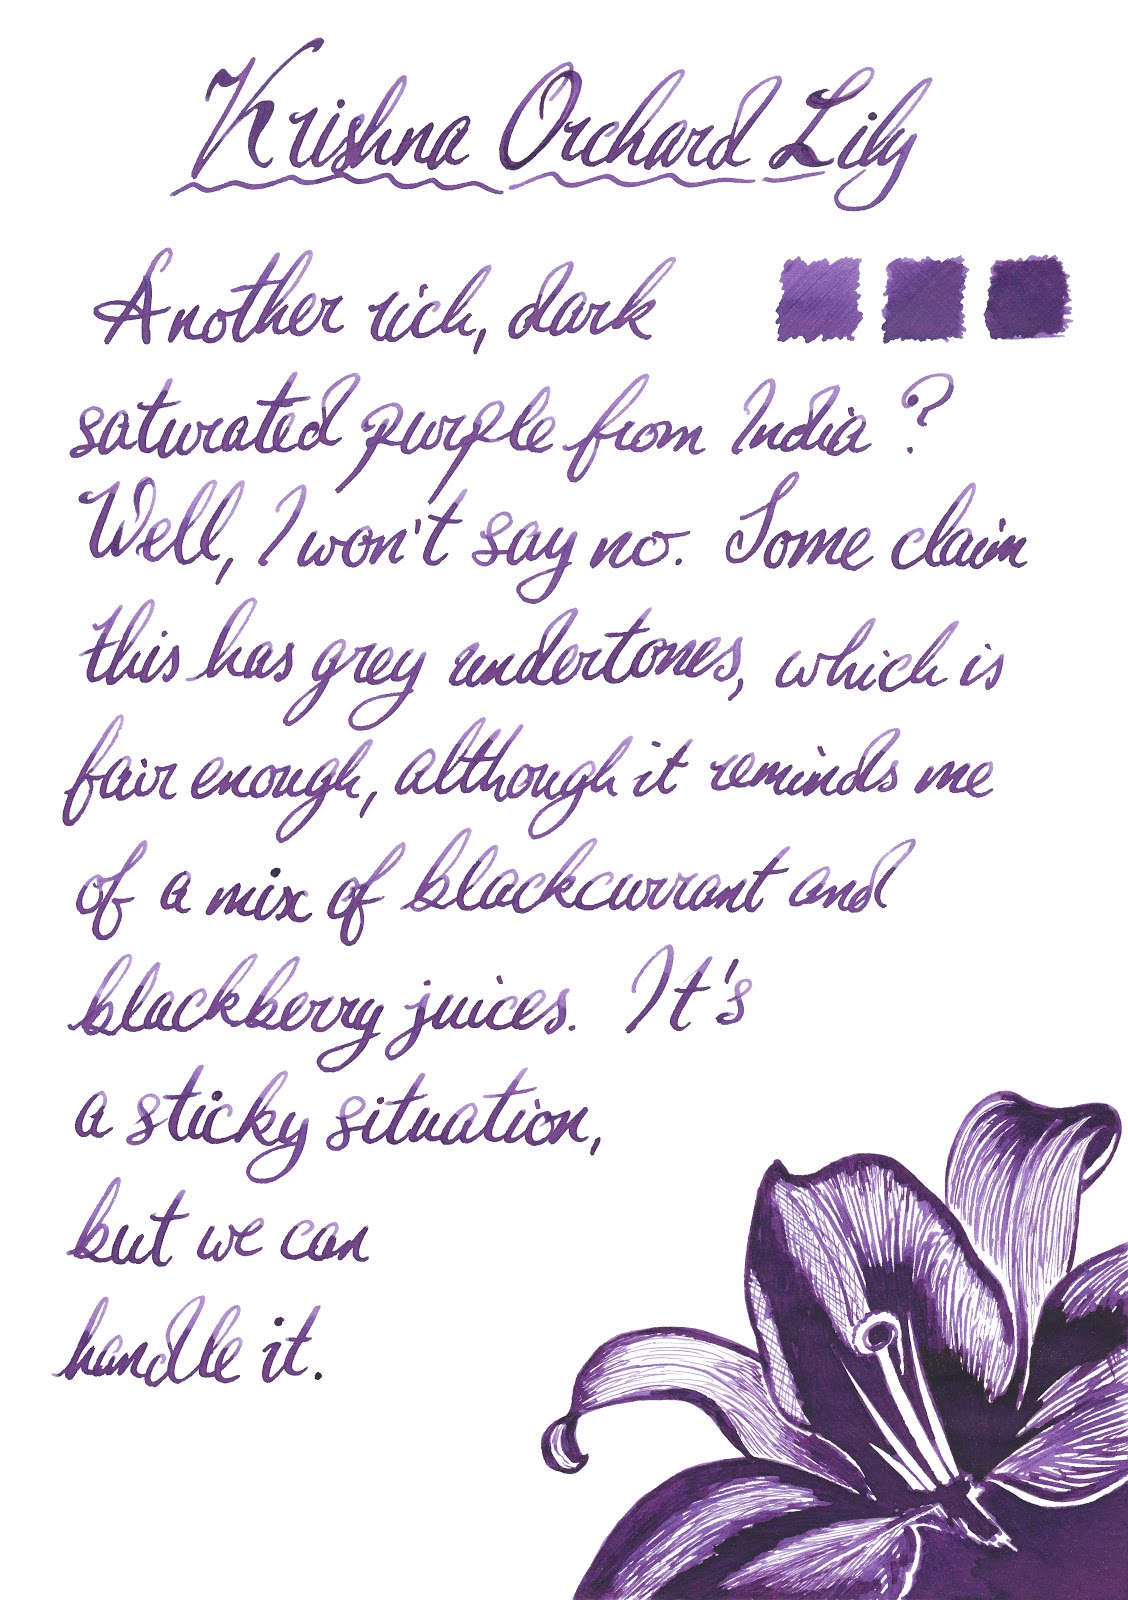 Krishna Orchard Lily
Another rich, dark
saturated purple from India?
Well, I won't say no. Some claim
this has grey undertones, which is
fair enough, although it reminds me
of a mix of blackcurrant and
blackberry juices. It's
a sticky situation,
but we can
handle it.